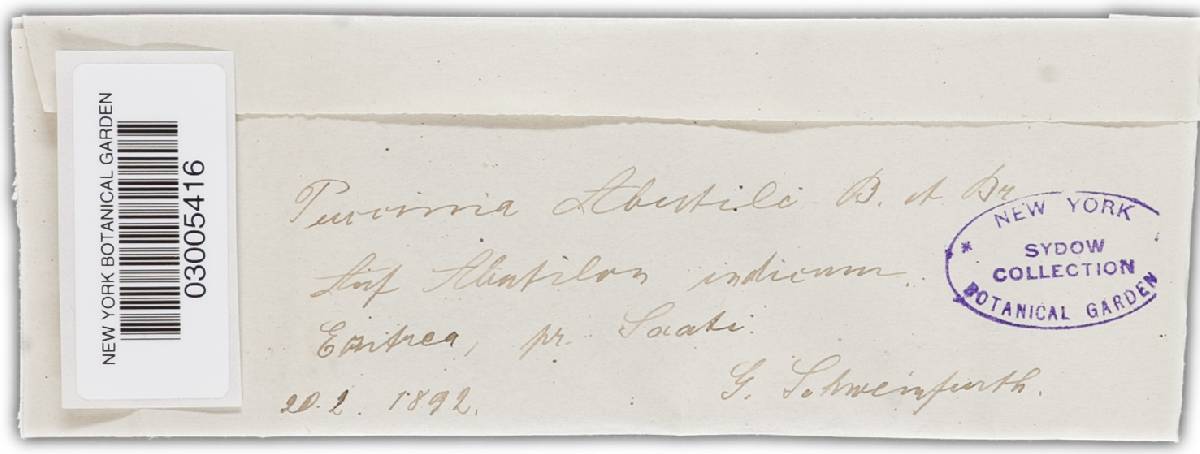 NEW YORK BOTANICAL GARDEN
03005416
Puccinia Abutili B. et Br.
Auf Abutilon indicum.
Eritrea, pr. Saati.
20.2. 1892.
G. Schweinfurth.
NEW YORK
SYDOW
COLLECTION
BOTANICAL GARDEN